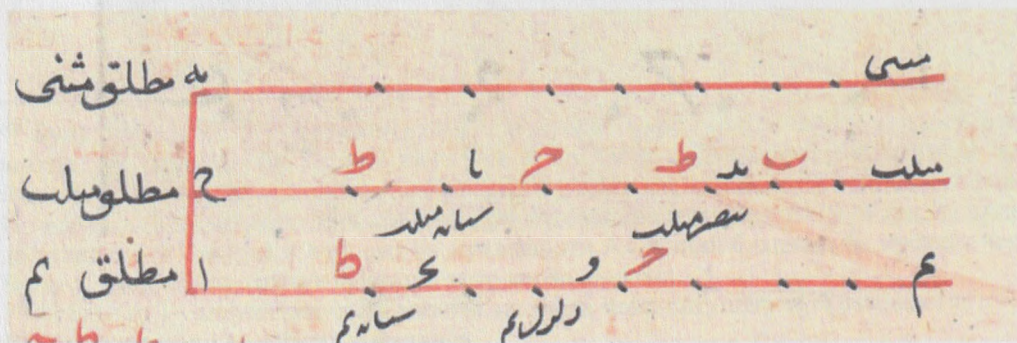 مثنى يه مطلق مثنى
مثلث ب يد ط ح يا ط ح مطلق مثلث
بنصر مثلث سبابه مثلث
بم و ط ا مطلق بم
زلزل بم سبابه بم